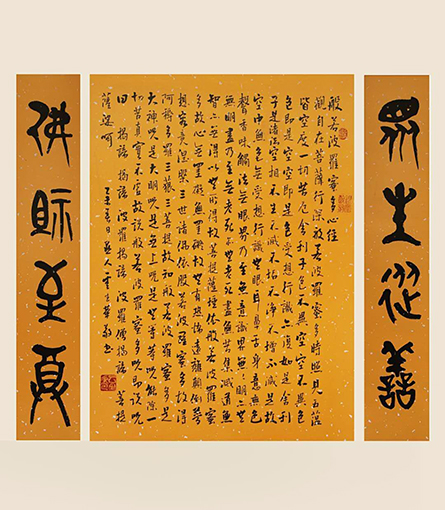 眾生從善
般若波羅蜜多心經
觀自在菩薩行深般若波羅蜜多時照見五蘊
皆空度一切苦厄舍利子色不異空空不異色
色即是空空即是色受想行識亦復如是舍利
子是諸法空相不生不滅不垢不淨不增不減是故
空中無色無受想行識無眼耳鼻舌身意無色
聲香味觸法無眼界乃至無意識界無無明亦無
無明盡乃至無老死亦無老死盡無苦集滅道無
智亦無得以無所得故菩提薩埵依般若波羅蜜
多故心無罣礙無罣礙故無有恐怖遠離顛倒夢
想究竟涅槃三世諸佛依般若波羅蜜多故得
阿耨多羅三藐三菩提故知般若波羅蜜多是
大神咒是大明咒是無上咒是無等等咒能除一
切苦真實不虛故說般若波羅蜜多咒即說咒
曰 揭諦揭諦 波羅揭諦 波羅僧揭諦 菩提
薩婆訶
佛 至